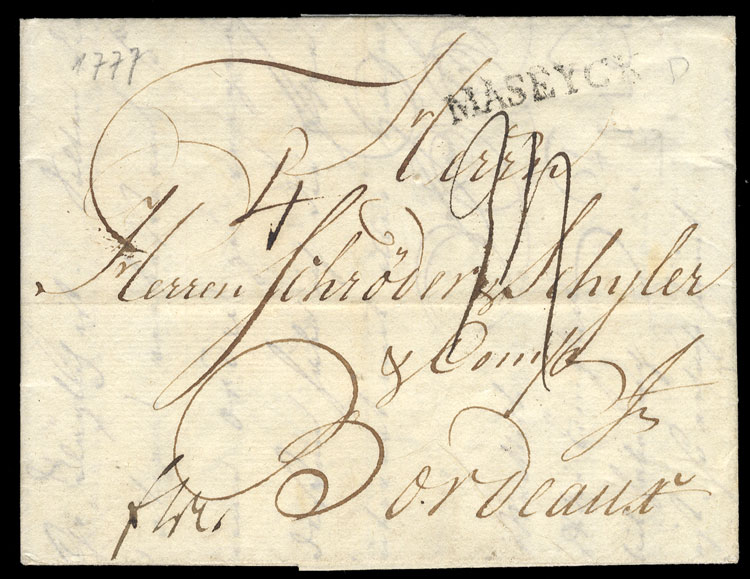 1777
MASEYCK D
Herren
4
Herren Schröder & Schyler
& Comp
In
Bordeaux